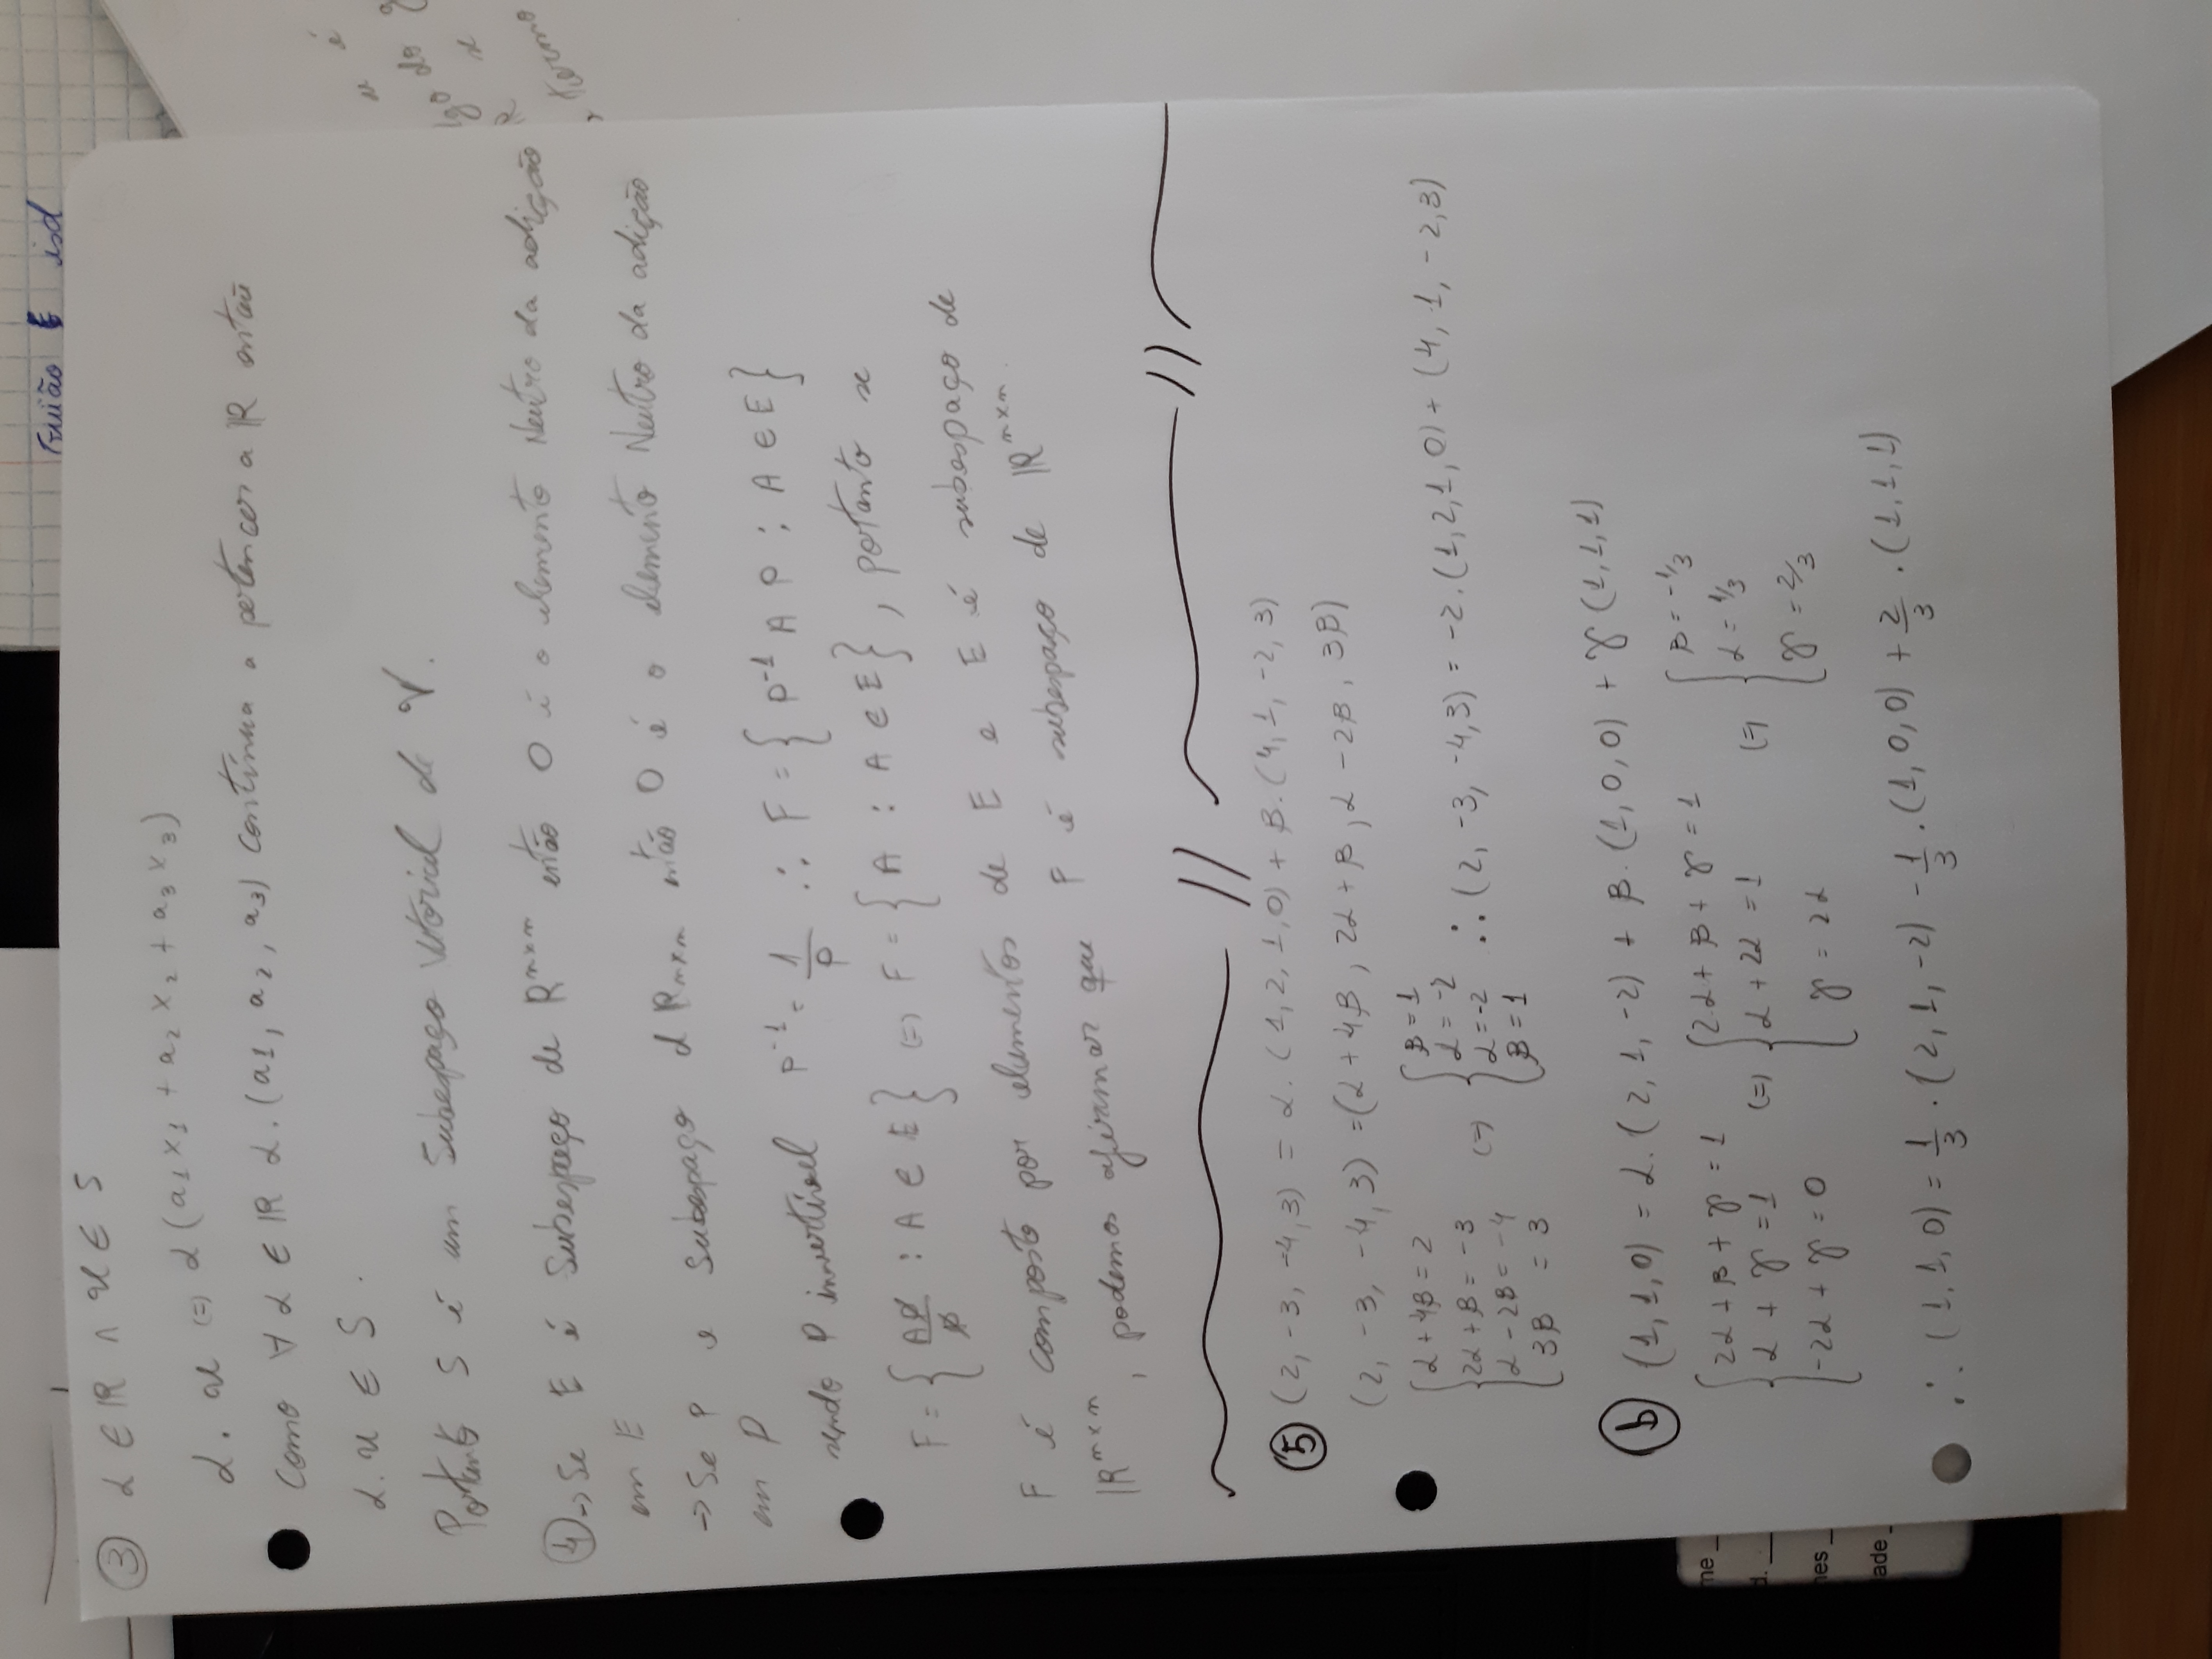 Guião E isd
③ α ∈ ℝ ∧ u ∈ S
α . u (=) α (a₁x₁ + a₂x₂ + a₃x₃)
Como ∀ α ∈ ℝ α.(a1, a₂, a₃) contínua a pertencer a ℝ então
α.u ∈ S .
Portanto S é um Subespaço Vetorial de V.
④ -> Se E é Subespaço de Rⁿˣⁿ então O é o elemento Neutro da adição
em E
-> Se P e Subespaço d Rₙₓₙ então O é o elemento Neutro da adição
em P
sendo P invertível P⁻¹ = 1/P ∴ F = { P⁻¹ A P ; A ∈ E}
F = { AP/P : A ∈ E } (=) F = { A : A ∈ E}, portanto se
F é composto por elementos de E e E é subespaço de
ℝⁿˣⁿ, podemos afirmar que F é subespaço de ℝⁿˣⁿ.
⑤ (2, -3, -4, 3) = α. (1, 2, 1, 0) + β. (4, 1, -2, 3)
(2, -3, -4, 3) = (α + 4β, 2α + β, α - 2β, 3β)
{ α + 4β = 2 { β = 1
2α + β = -3 α = -2
α - 2β = -4 (=) α = -2 ∴ (2, -3, -4, 3) = -2. (1, 2, 1, 0) + (4, 1, -2, 3)
3β = 3 β = 1
ⓑ (1, 1, 0) = α. (2, 1, -2) + β. (1, 0, 0) + γ (1, 1, 1)
{ 2α + β + γ = 1 { 2α + β + γ = 1 { β = -1/3
α + γ = 1 (=) α + 2α = 1 (=) α = 1/3
-2α + γ = 0 γ = 2α γ = 2/3
∴ (1, 1, 0) = 1/3 . (2, 1, -2) - 1/3 . (1, 0, 0) + 2/3 . (1, 1, 1)
u é
do
x
termo
me _
d. __
nes _
ade _